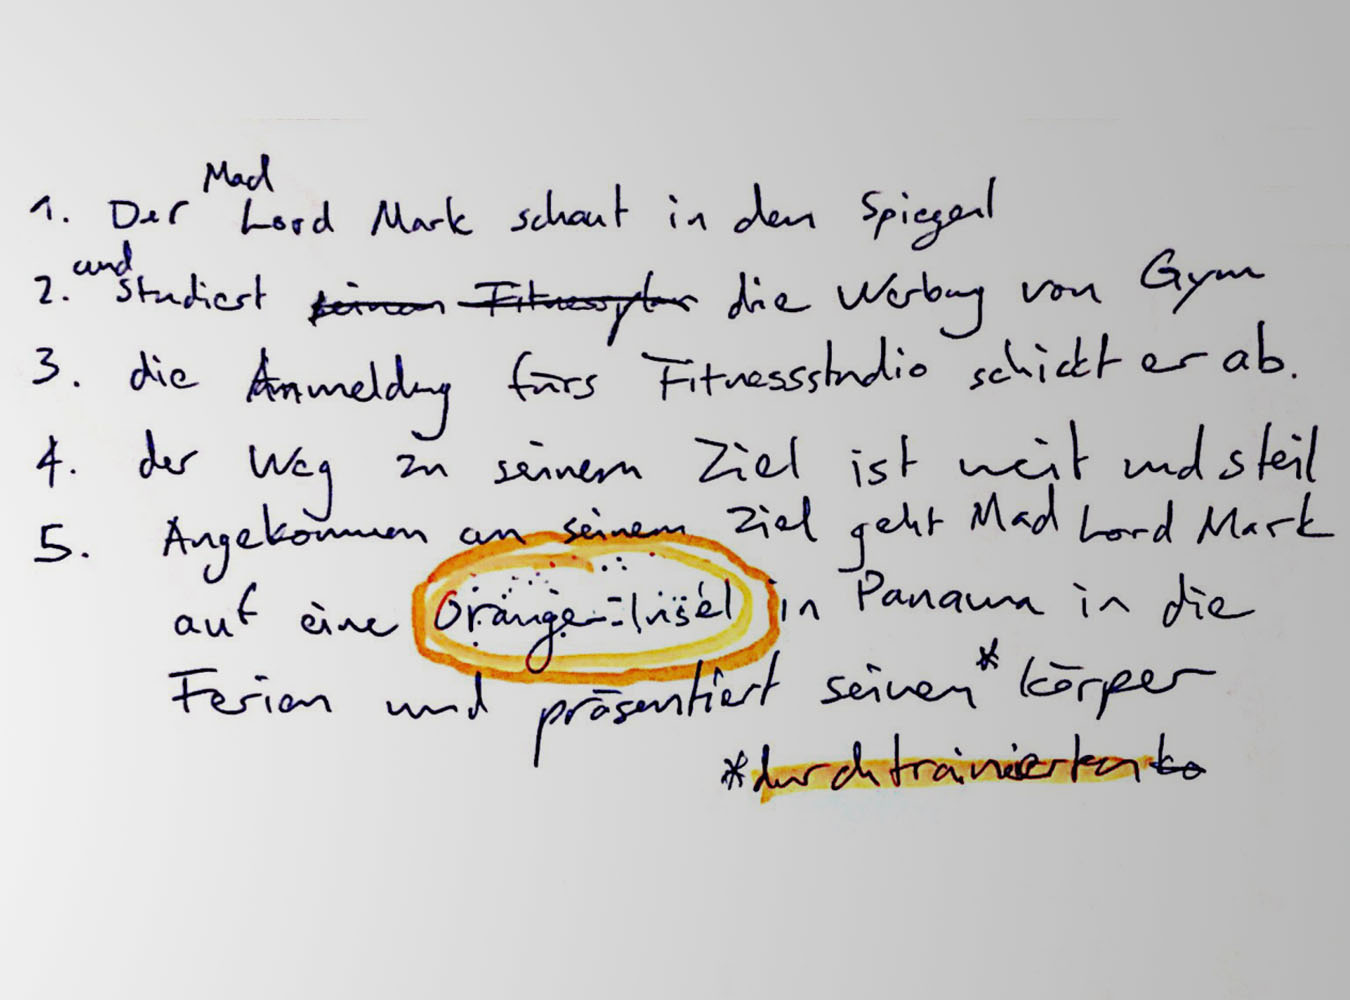 Mad
1. Der Lord Mark schaut in den Spiegel
und
2. studiert seinen Fitnessplan die Werbung von Gym
3. die Anmeldung fürs Fitnessstudio schickt er ab.
4. der Weg zu seinem Ziel ist weit und steil
5. Angekommen an seinem Ziel geht Mad Lord Mark
auf eine Orange-Insel in Panama in die
Ferien und präsentiert seinen* Körper
*durchtrainierten Kö